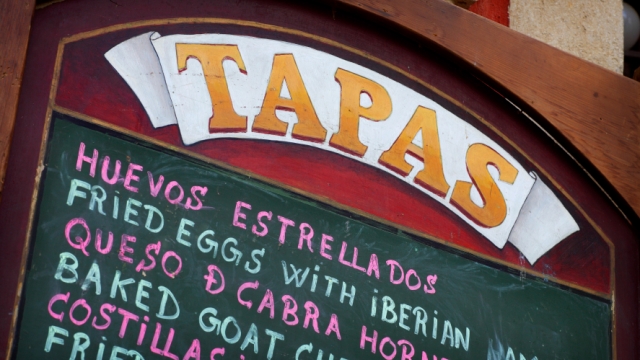 TAPAS
HUEVOS ESTRELLADOS
FRIED EGGS WITH iBERiAN
QUESO Đ CABRA
BAKED GOAT
COSTiLLAS
FRIED